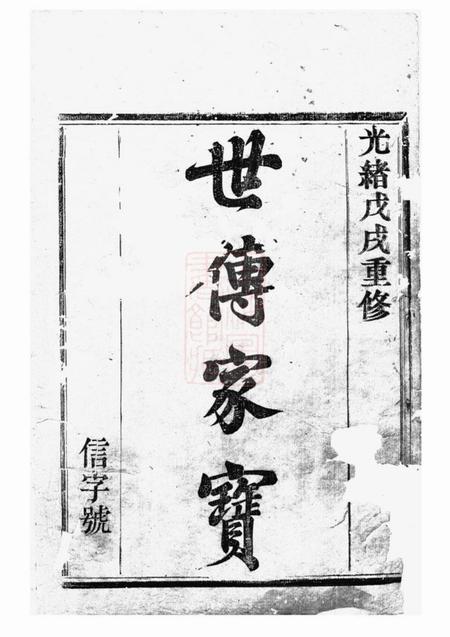 光緒戊戌重修
世傳家寶
信字號